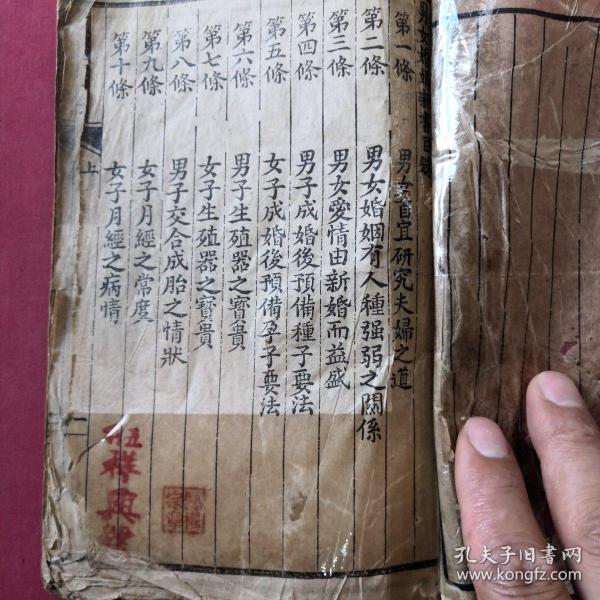 第一條 男女皆宜研究夫婦之道
第二條 男女婚姻有人種强弱之關係
第三條 男女愛情由新婚而益盛
第四條 男子成婚後預備種子要法
第五條 女子成婚後預備孕子要法
第六條 男子生殖器之寳貴
第七條 女子生殖器之寳貴
第八條 男子交合成胎之情狀
第九條 女子月經之常度
第十條 女子月經之病情
上
二
孔夫子旧书网
www.kongfz.com